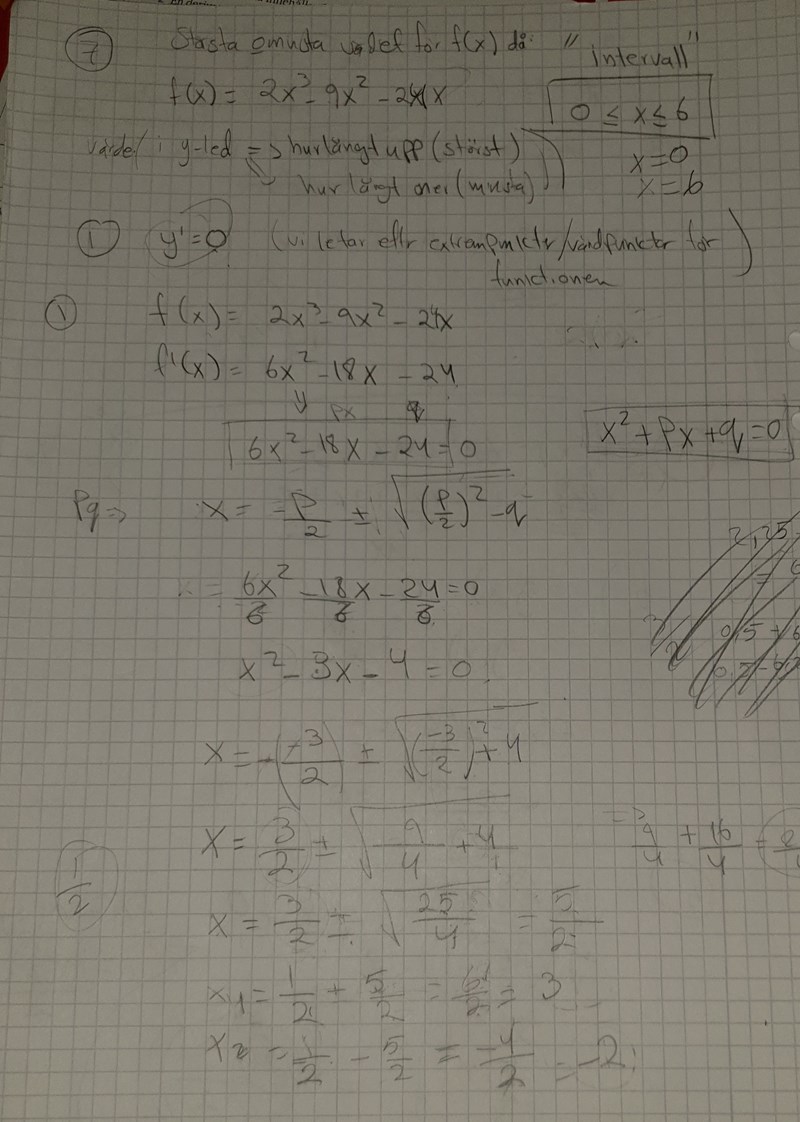 7 Största o minsta värdet för f(x) då: "Intervall"
f(x) = 2x³ - 9x² - 24x
0 ≤ x ≤ 6
värdet i y-led => hur långt upp (störst)
x=0
hur långt ner (minsta)
x=6
1 y'=0 (vi letar eftr extrempunktr/vändpunktor för
functionen
1 f(x) = 2x³ - 9x² - 24x
f'(x) = 6x² - 18x - 24
px q
6x² - 18x - 24 = 0
x² + px + q = 0
Pq => x = -p/2 ± √((p/2)² - q)
2,25
6x²/6 - 18x/6 - 24/6 = 0
x² - 3x - 4 = 0
x = -(-3/2) ± √((-3/2)² + 4)
x = 3/2 ± √(9/4 + 4)
9/4 + 16/4
1/2
x = 3/2 ± √(25/4) = 5/2
x1 = 1/2 + 5/2 = 6/2 = 3
x2 = 1/2 - 5/2 = -4/2 = -2